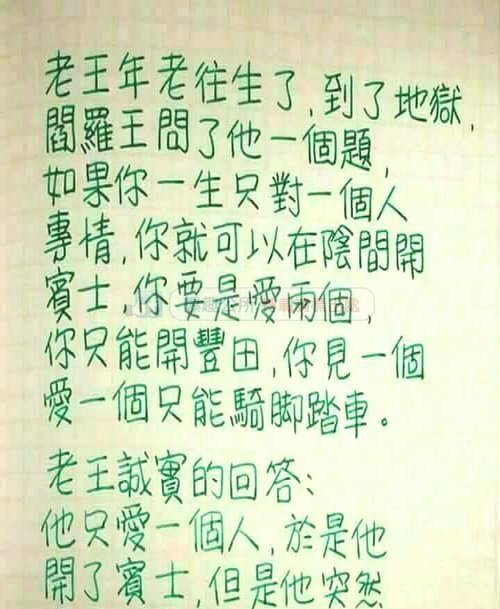 老王年老往生了,到了地獄,
閻羅王問了他一個題,
如果你一生只對一個人
專情,你就可以在陰間開
賓士,你要是愛兩個,
你只能開豐田,你見一個
愛一個只能騎腳踏車。
老王誠實的回答:
他只愛一個人,於是他
開了賓士,但是他突然